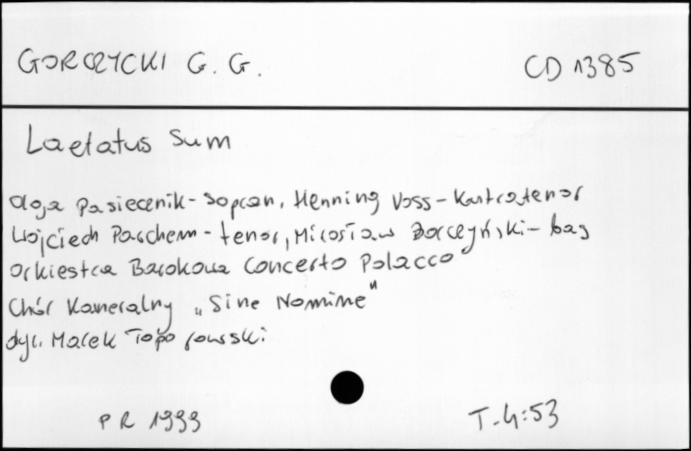 GORCZYCKI G. G.
CD 1385
Laetatus Sum
Olga Pasiecznik - Sopran, Henning Voss - Kontratenor
Wojciech Parchem - tenor, Mirosław Borczyński - bas
Orkiestra Barokowa Concerto Polacco
Chór Kameralny „Sine Nomine"
dyr. Marek Toporowski
PR 1999
T-4:53